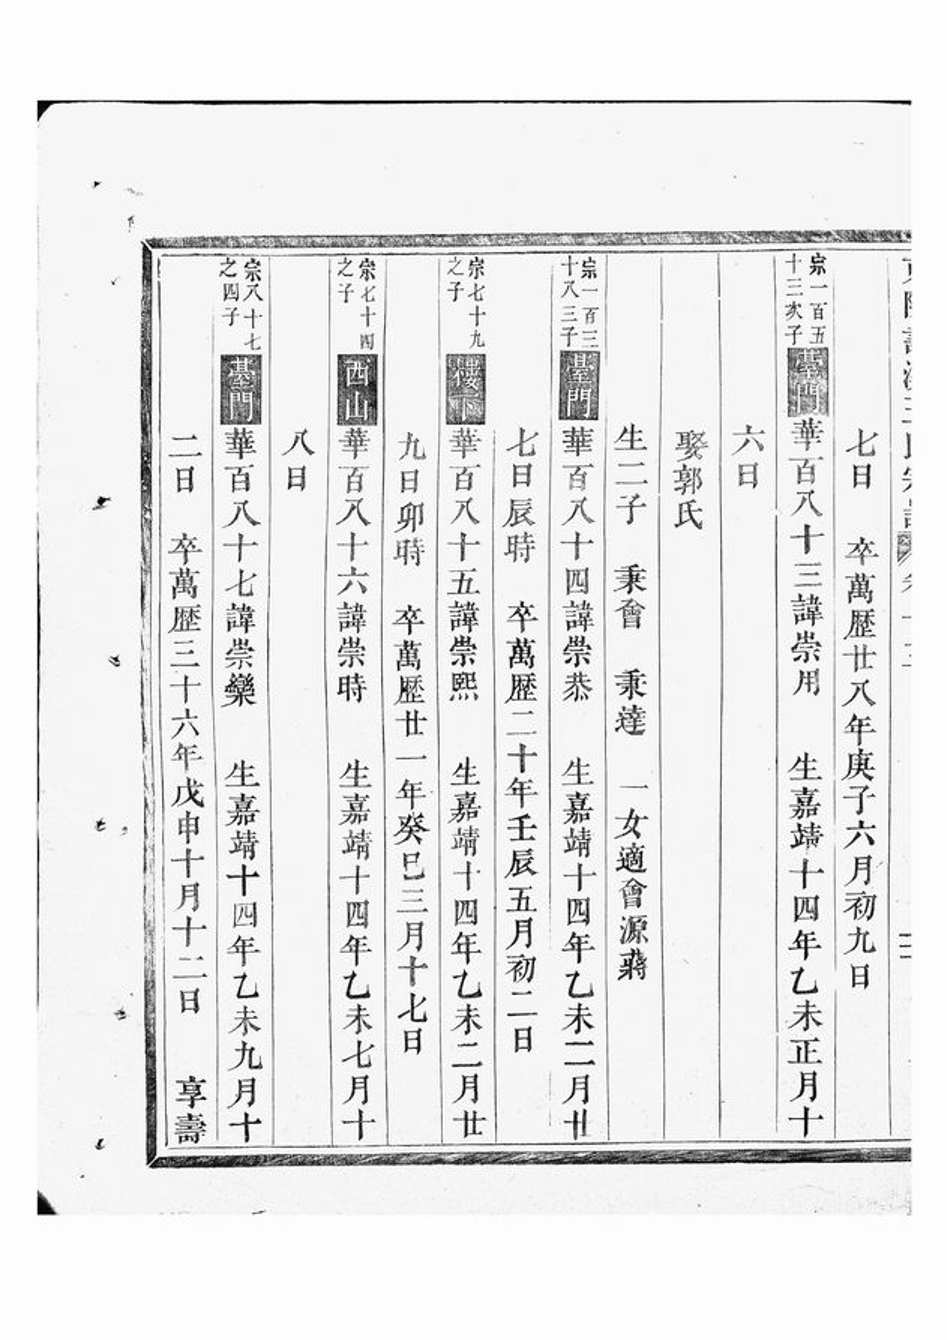 七日　卒萬歷廿八年庚子六月初九日
宗一百五十三次子　臺門　華百八十三諱崇用　生嘉靖十四年乙未正月十
六日
娶郭氏
生二子　秉會　秉達　一女適會源蔣
宗一百三十八三子　臺門　華百八十四諱崇恭　生嘉靖十四年乙未二月廿
七日辰時　卒萬歷二十年壬辰五月初二日
宗七十九之子　樓下　華百八十五諱崇熙　生嘉靖十四年乙未二月廿
九日卯時　卒萬歷廿一年癸巳三月十七日
宗七十四之子　西山　華百八十六諱崇時　生嘉靖十四年乙未七月十
八日
宗八十七之四子　臺門　華百八十七諱崇欒　生嘉靖十四年乙未九月十
二日　卒萬歷三十六年戊申十月十二日　享壽